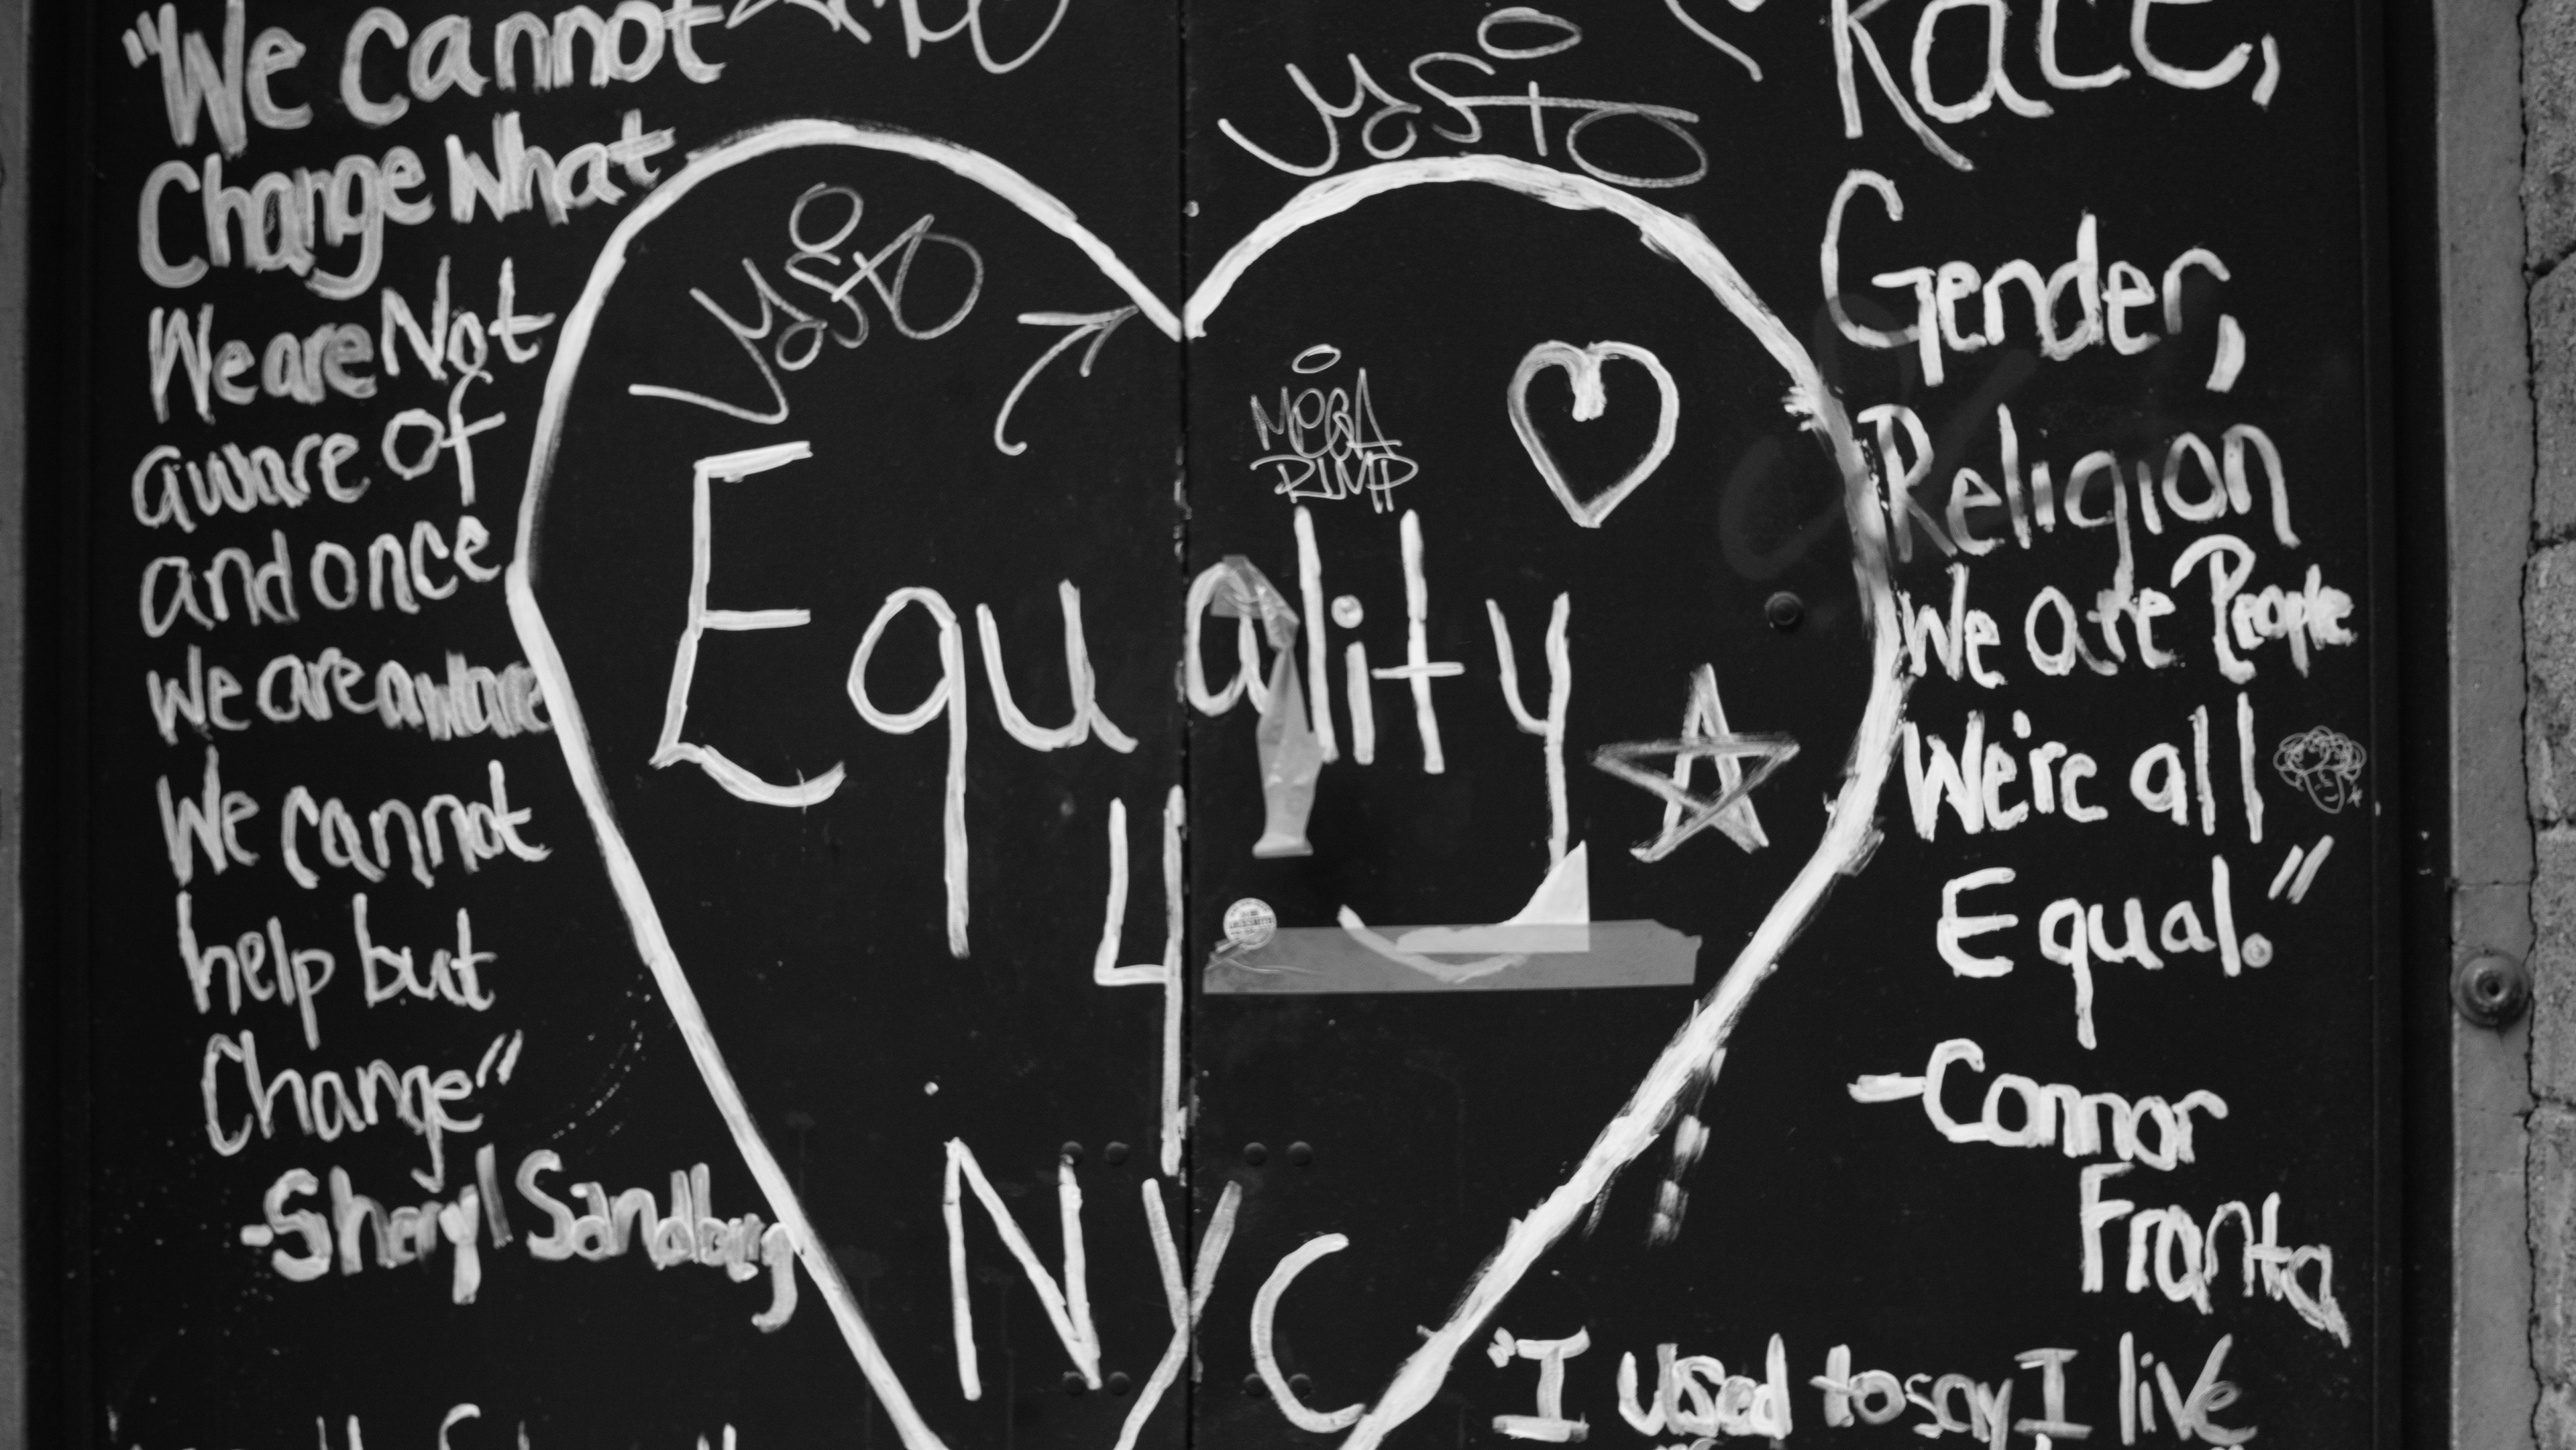 "We cannot
Change What
We are Not
aware of
and once
we are aware
We cannot
help but
Change"
-Sheryl Sandburg
Equality
4
NYC
MEGA
Race,
Gender,
Religion
We are People
We're all
Equal."
-Connor
Franta
"I Used to say I live